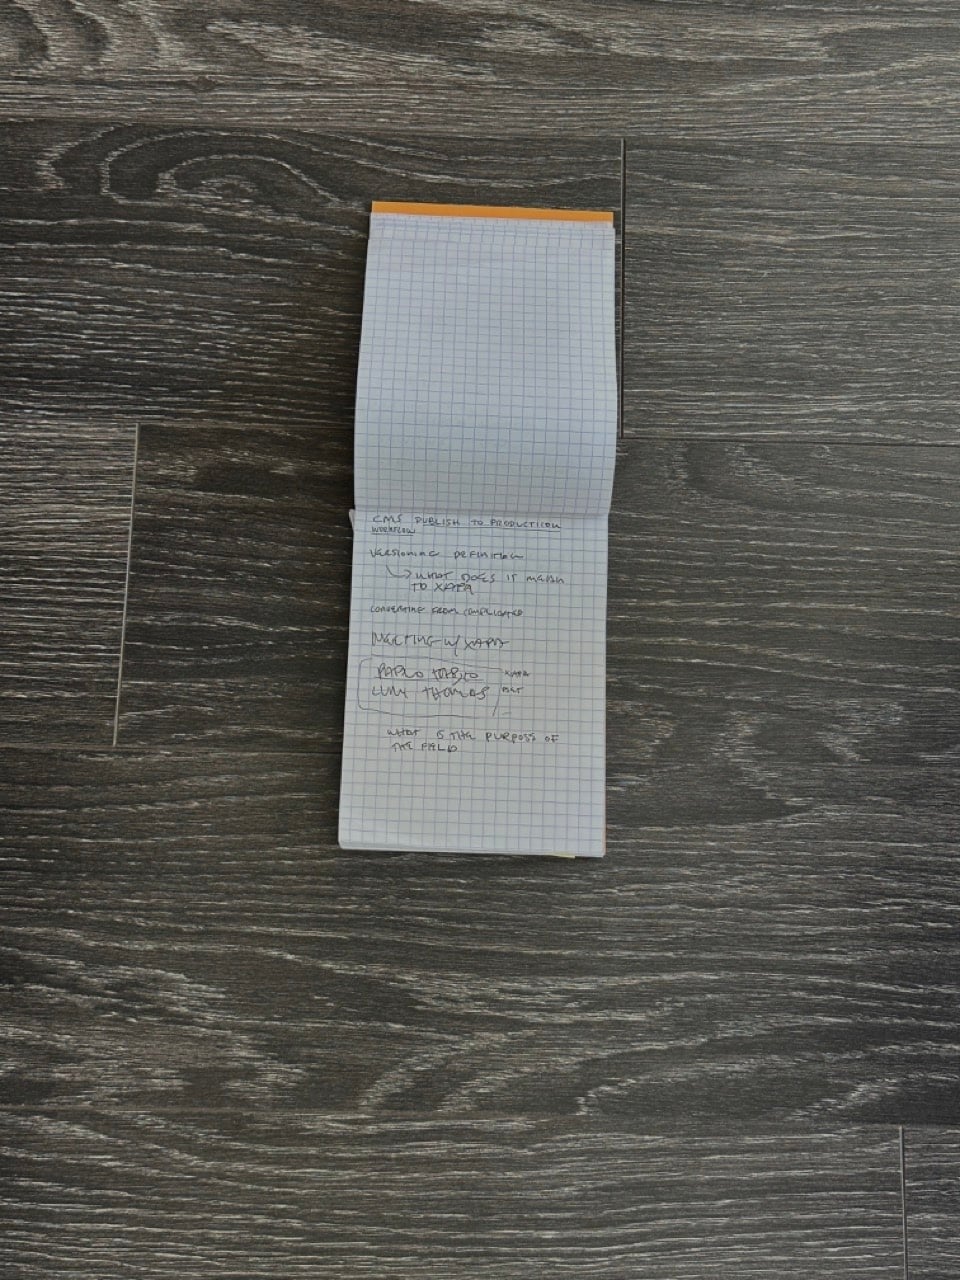 CMS PUBLISH TO PRODUCTION
WORKFLOW
VERSIONING DEFINITION
WHAT DOES IT MEAN
TO XAPA
CONVERTING FROM COMPLICATED
MEETING W/ XAPA
PABLO XAPA
THOMAS
WHAT IS THE PURPOSE OF
THE FIELD